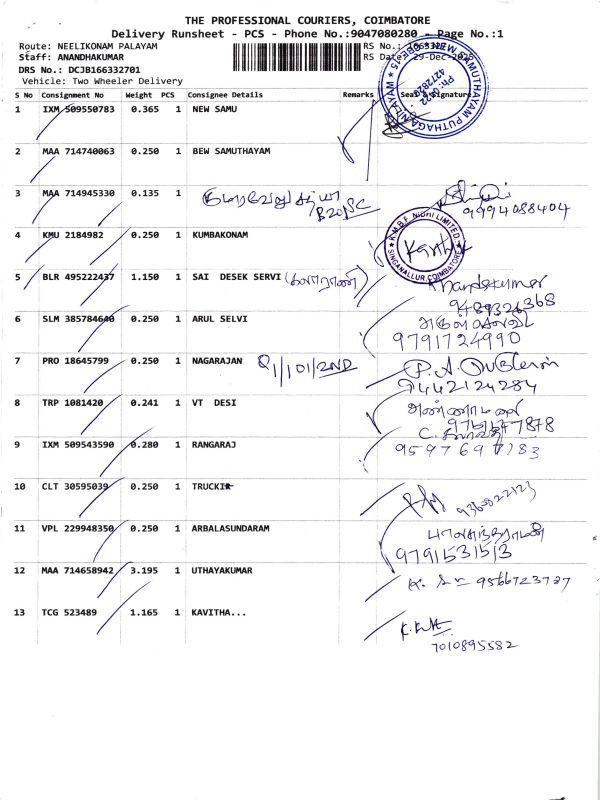 THE PROFESSIONAL COURIERS, COIMBATORE
Delivery Runsheet - PCS - Phone No.:9047080280 - Page No.:1
Route: NEELIKONAM PALAYAM
Staff: ANANDHAKUMAR
RS Date: 29-Dec-2025
DRS No.: DCJB166332701
Vehicle: Two Wheeler Delivery
S No Consignment No Weight PCS Consignee Details Remarks Seal & Signature
1 IXM 509550783 0.365 1 NEW SAMU
2 MAA 714740063 0.250 1 BEW SAMUTHAYAM
3 MAA 714945330 0.135 1
9994088404
4 KMU 2184982 0.250 1 KUMBAKONAM
K.M.B.F. NIDHI LIMITED
SINGANALLUR, COIMBATORE
5 BLR 495222437 1.150 1 SAI DESEK SERVI
9489326368
6 SLM 385784640 0.250 1 ARUL SELVI
9791724990
7 PRO 18645799 0.250 1 NAGARAJAN Q1/101/2ND
9442124284
8 TRP 1081420 0.241 1 VT DESI
அண்ணாமலை
9 IXM 509543590 0.280 1 RANGARAJ
10 CLT 30595039 0.250 1 TRUCKI
9360822123
11 VPL 229948350 0.250 1 ARBALASUNDARAM
9791531513
12 MAA 714658942 3.195 1 UTHAYAKUMAR
9566723737
13 TCG 523489 1.165 1 KAVITHA...
7010895582